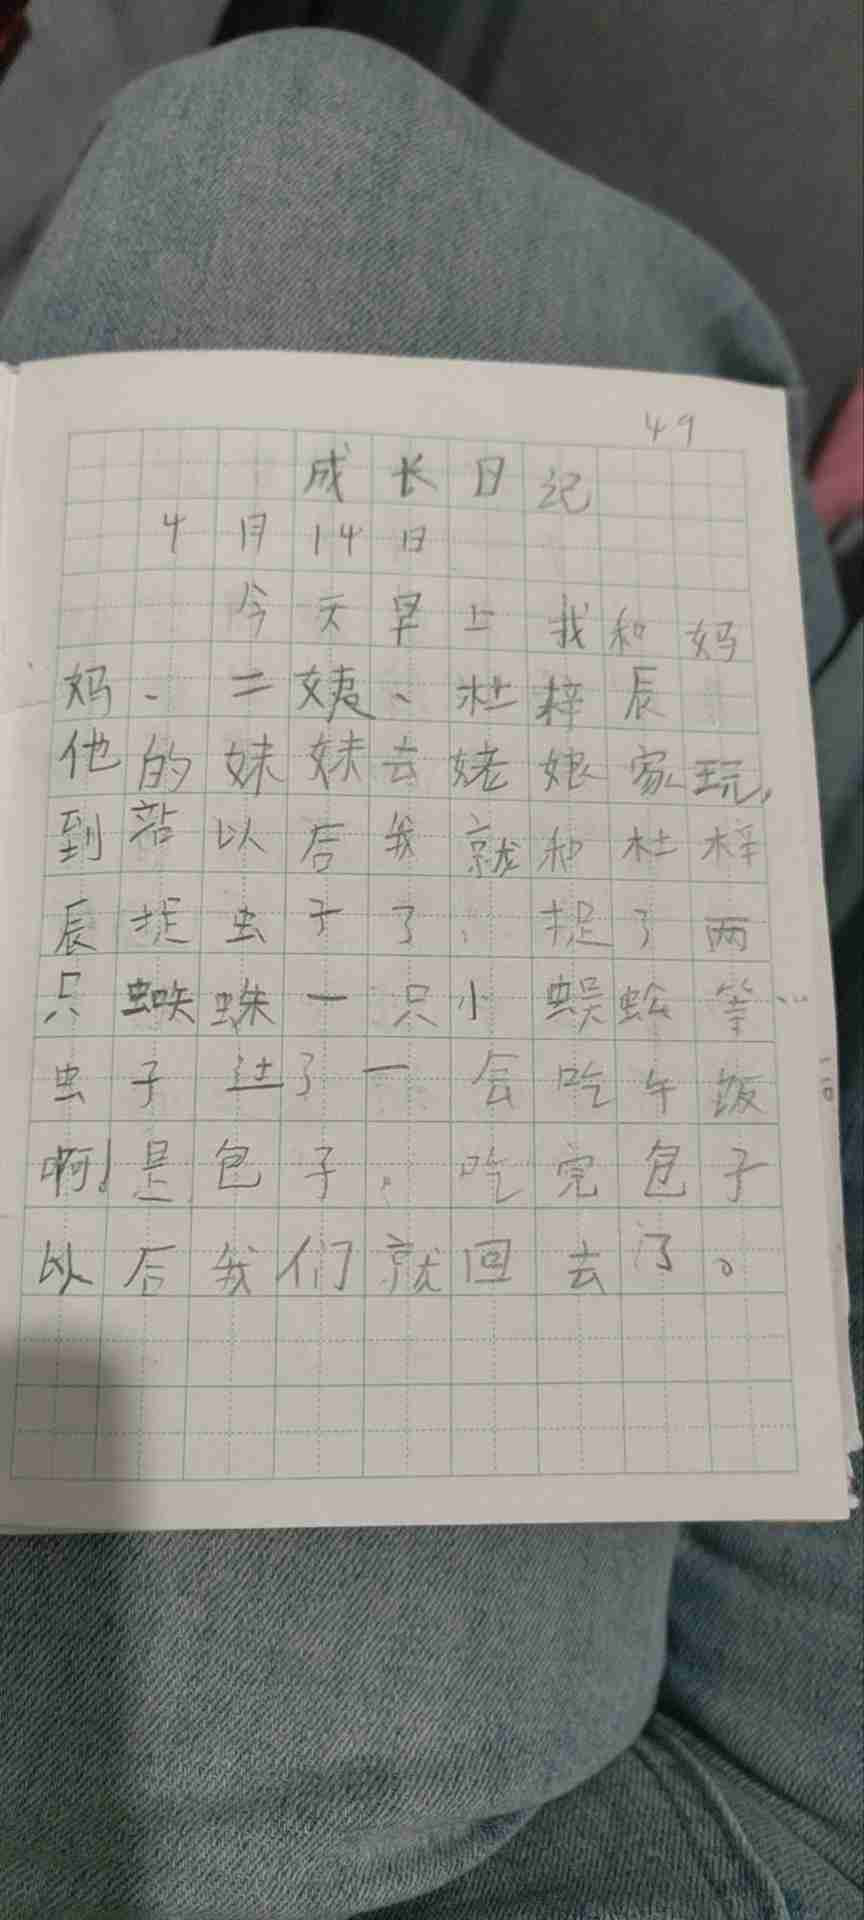 49
成长日记
4月14日
今天早上我和妈
妈、二姨、杜梓辰
他的妹妹去姥娘家玩,
到站以后我就和杜梓
辰捉虫子了,捉了两
只蜘蛛一只小蜈蚣等
虫子过了一会吃午饭
啊!是包子,吃完包子
以后我们就回去了。